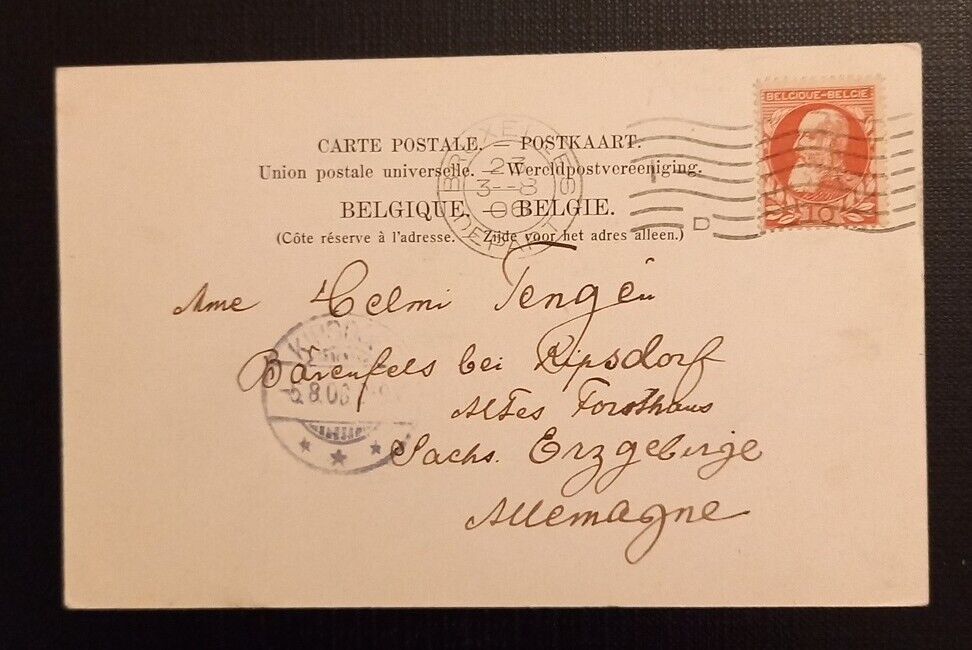 BELGIQUE-BELGIË
10
CARTE POSTALE. — POSTKAART.
Union postale universelle. — Wereldpostvereeniging.
BELGIQUE. — BELGIE.
(Côte réserve à l'adresse. — Zijde voor het adres alleen.)
BRUXELLES
3--8
06
DEPART
D
Mme Helmi Tengén
Bärenfels bei Kipsdorf
Altes Forsthaus
Sachs. Erzgebirge
Allemagne
5.8.06